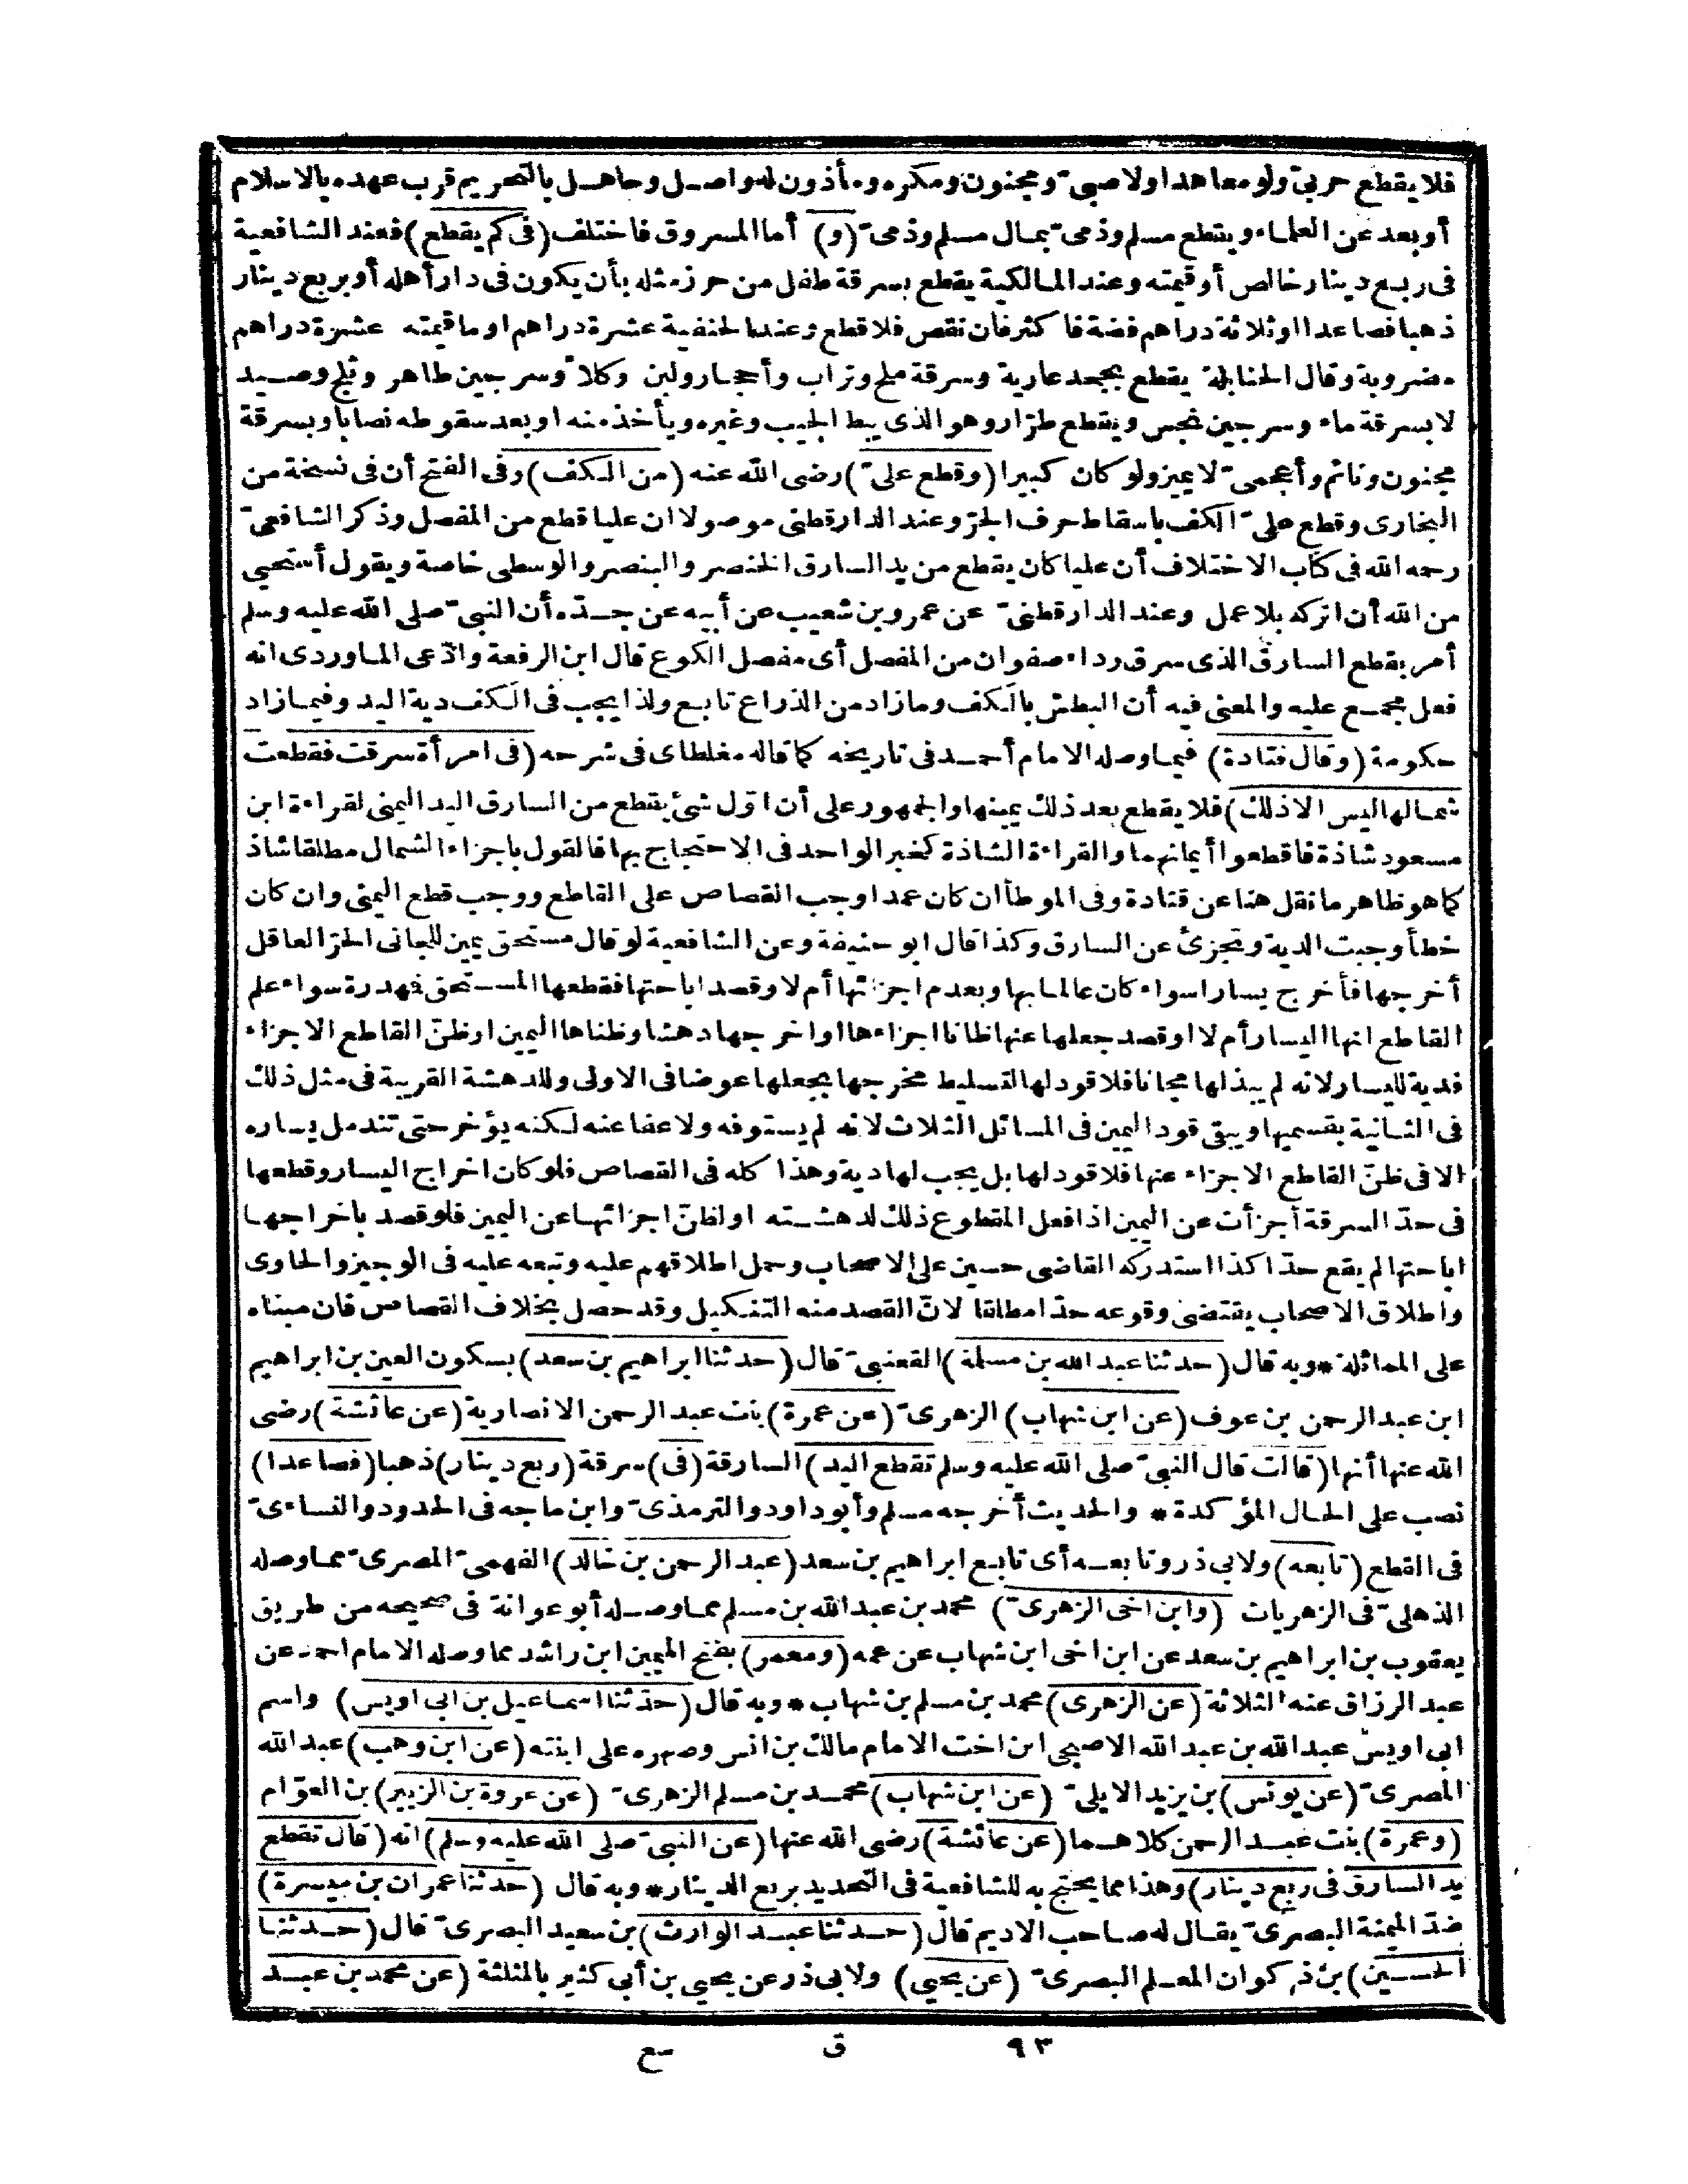 فلا يقطع حربىّ ولو معاهدا ولا صبىّ ومجنون ومكره ومأذون له واصل وجاهل بالتحريم قرب عهده بالاسلام
أو بعد عن العلماء ويقطع مسلم وذمىّ بمال مسلم وذمىّ (و) أما المسروق فاختلف (فى كم يقطع) فعند الشافعية
فى ربع دينار خالص أو قيمته وعند المالكية يقطع بسرقة طفل من حرز مثله بأن يكون فى دار أهله أو بربع دينار
ذهبا فصاعدا او ثلاثة دراهم فضة فاكثر فان نقص فلا قطع وعند الحنفية عشرة دراهم او ما قيمته عشرة دراهم
مضروبة وقال الحنابلة يقطع بجحد عارية وسرقة ملح وتراب وأحجار ولبن وكلا ٔ وسرجين طاهر وثلج وصيد
لا بسرقة ماء وسرجين نجس ويقطع طرّار وهو الذى يبط الجيب وغيره ويأخذ منه او بعد سقوطه نصابا وبسرقة
مجنون ونائم وأعجمىّ لا يميز ولو كان كبيرا (وقطع علىّ) رضى الله عنه (من الكف) وفى الفتح أن فى نسخة من
البخارى وقطع علىّ الكف باسقاط حرف الجرّ وعند الدارقطنى موصولا ان عليا قطع من المفصل وذكر الشافعىّ
رحمه الله فى كتاب الاختلاف أن عليا كان يقطع من يد السارق الخنصر والبنصر والوسطى خاصة ويقول أستحيى
من الله أن اتركه بلا عمل وعند الدارقطنىّ عن عمرو بن شعيب عن أبيه عن جدّه أن النبىّ صلى الله عليه وسلم
أمر بقطع السارق الذى سرق رداء صفوان من المفصل أى مفصل الكوع قال ابن الرفعة وادّعى الماوردى انه
فعل مجمع عليه والمعنى فيه أن البطش بالكف وما زاد من الذراع تابع ولذا يجب فى الكف دية اليد وفيما زاد
حكومة (وقال قتادة) فيما وصله الامام أحمد فى تاريخه كما قاله مغلطاى فى شرحه (فى امرأة سرقت فقطعت
شمالها ليس الا ذلك) فلا يقطع بعد ذلك يمينها والجمهور على أن اوّل شئ يقطع من السارق اليد اليمنى لقراءة ابن
مسعود شاذة فاقطعوا أيمانهما والقراءة الشاذة كخبر الواحد فى الاحتجاج بها فالقول باجزاء الشمال مطلقا شاذ
كما هو ظاهر ما نقل هنا عن قتادة وفى الموطأ ان كان عمدا وجب القصاص على القاطع ووجب قطع اليمنى وان كان
خطأ وجبت الدية وتجزئ عن السارق وكذا قال ابو حنيفة وعن الشافعية لو قال مستحق يمين للجانى الحرّ العاقل
أخرجها فأخرج يسارا سواء كان عالما بها وبعدم اجزائها أم لا وقصد اباحتها فقطعها المستحق فهدرة سواء علم
القاطع انها اليسار أم لا او قصد جعلها عنها ظانا اجزاءها او اخرجها دهشا وظناها اليمين او ظنّ القاطع الاجزاء
فدية لليسار لانه لم يبذلها مجانا فلا قود لها لتسليط مخرجها بجعلها عوضا فى الاولى وللدهشة القريبة فى مثل ذلك
فى الثانية بقسميها ويبقى قود اليمين فى المسائل الثلاث لانه لم يستوفه ولا عفا عنه لكنه يؤخر حتى تندمل يساره
الا فى ظنّ القاطع الاجزاء عنها فلا قود لها بل يجب لها دية وهذا كله فى القصاص فلو كان اخراج اليسار وقطعها
فى حدّ السرقة أجزأت عن اليمين اذا فعل المقطوع ذلك لدهشته او لظنّ اجزائها عن اليمين فلو قصد باخراجها
اباحتها لم يقع حدّا كذا استدركه القاضى حسين على الاصحاب وحمل اطلاقهم عليه وتبعه عليه فى الوجيز والحاوى
واطلاق الاصحاب يقتضى وقوعه حدّا مطلقا لانّ القصد منه التنكيل وقد حصل بخلاف القصاص فان مبناه
على المماثلة * وبه قال (حدثنا عبد الله بن مسلمة) القعنبىّ قال (حدثنا ابراهيم بن سعد) بسكون العين بن ابراهيم
ابن عبد الرحمن بن عوف (عن ابن شهاب) الزهرىّ (عن عمرة) بنت عبد الرحمن الانصارية (عن عائشة) رضى
الله عنها أنها (قالت قال النبىّ صلى الله عليه وسلم تقطع اليد) السارقة (فى) سرقة (ربع دينار) ذهبا (فصاعدا)
نصب على الحال المؤكدة * والحديث أخرجه مسلم وأبو داود والترمذىّ وابن ماجه فى الحدود والنساءىّ
فى القطع (تابعه) ولابى ذر وتابعه أى تابع ابراهيم بن سعد (عبد الرحمن بن خالد) الفهمىّ المصرىّ مما وصله
الذهلىّ فى الزهريات (وابن اخى الزهرىّ) محمد بن عبد الله بن مسلم مما وصله أبو عوانة فى صحيحه من طريق
يعقوب بن ابراهيم بن سعد عن ابن اخى ابن شهاب عن عمه (ومعمر) بفتح الميمين ابن راشد مما وصله الامام احمد عن
عبد الرزاق عنه الثلاثة (عن الزهرى) محمد بن مسلم بن شهاب * وبه قال (حدّثنا اسماعيل بن ابى اويس) واسم
ابى اويس عبد الله بن عبد الله الاصبحى ابن اخت الامام مالك بن انس وصهره على ابنته (عن ابن وهب) عبد الله
المصرىّ (عن يونس) بن يزيد الايلىّ (عن ابن شهاب) محمد بن مسلم الزهرىّ (عن عروة بن الزبير) بن العوّام
(وعمرة) بنت عبد الرحمن كلاهما (عن عائشة) رضى الله عنها (عن النبىّ صلى الله عليه وسلم) انه (قال تقطع
يد السارق فى ربع دينار) وهذا مما يحتج به للشافعية فى التحديد بربع الدينار * وبه قال (حدثنا عمران بن ميسرة)
ضدّ الميمنة البصرىّ يقال له صاحب الاديم قال (حدثنا عبد الوارث) بن سعيد البصرىّ قال (حدثنا
الحسين) بن ذكوان المعلم البصرىّ (عن يحيى) ولابى ذر عن يحيى بن أبى كثير بالمثلثة (عن محمد بن عبد
٩٣ ق سع